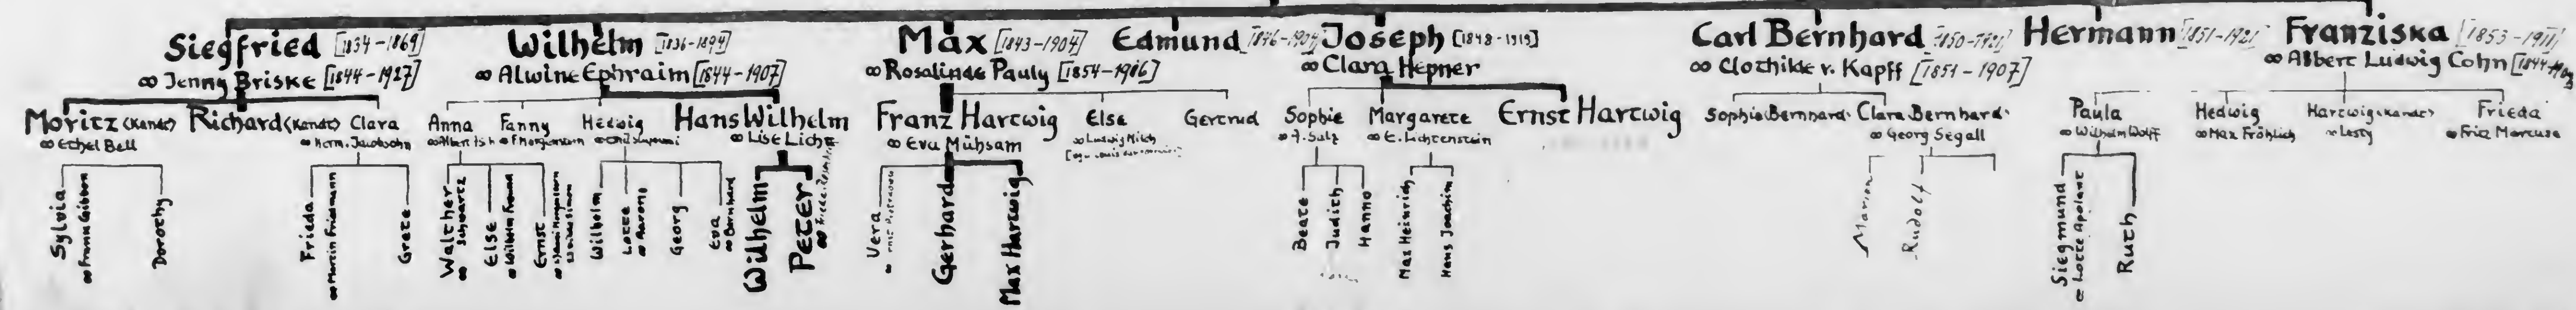 Siegfried [1834-1869]
∞ Jenny Briske [1844-1927]
Wilhelm [1836-1894]
∞ Alwine Ephraim [1844-1907]
Max [1843-1904]
∞ Rosalinde Pauly [1854-1916]
Edmund
Joseph [1848-1919]
∞ Clara Hepner
Carl Bernhard
∞ Clothilde v. Kapff [1851-1907]
Hermann [1851-1921]
Franziska [1853-1911]
∞ Albert Ludwig Cohn
Moritz (Kandt)
∞ Ethel Bell
Richard (Kandt)
Clara
∞ Herm. Jacobsohn
Anna
Fanny
Hedwig
Hans Wilhelm
∞ Lise Licht
Franz Hartwig
∞ Eva Mühsam
Else
∞ Ludwig Milch
Gertrud
Sophie
∞ A. Sulz
Margarete
∞ E. Lichtenstein
Ernst Hartwig
Sophie Bernhard
Clara Bernhard
∞ Georg Segall
Paula
∞ Wilhelm Wolff
Hedwig
∞ Max Fröhlich
Hartwig (Kandt)
∞ Lesty
Frieda
∞ Fritz Marcuse
Sylvia
∞ Frank Gibbon
Dorothy
Frieda
∞ Martin Friedmann
Grete
Walther
∞ Schwartz
Else
∞ Wilhelm Freund
Ernst
Wilhelm
Lotte
∞ Aarons
Georg
Eva
∞ Bernhard
Wilhelm
Peter
Vera
Gerhard
Max Hartwig
Beate
Judith
Hanno
Max Heinrich
Hans Joachim
Marion
Rudolf
Siegmund
∞ Lotte Apolant
Ruth